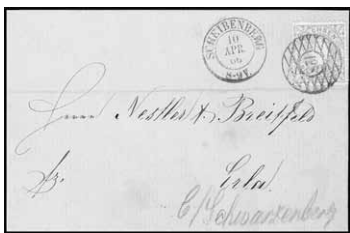 SCHEIBENBERG
10
APR
66
8-9V.
Herrn Nestler & Breitfeld
fr.
Erla
b/Schwarzenberg